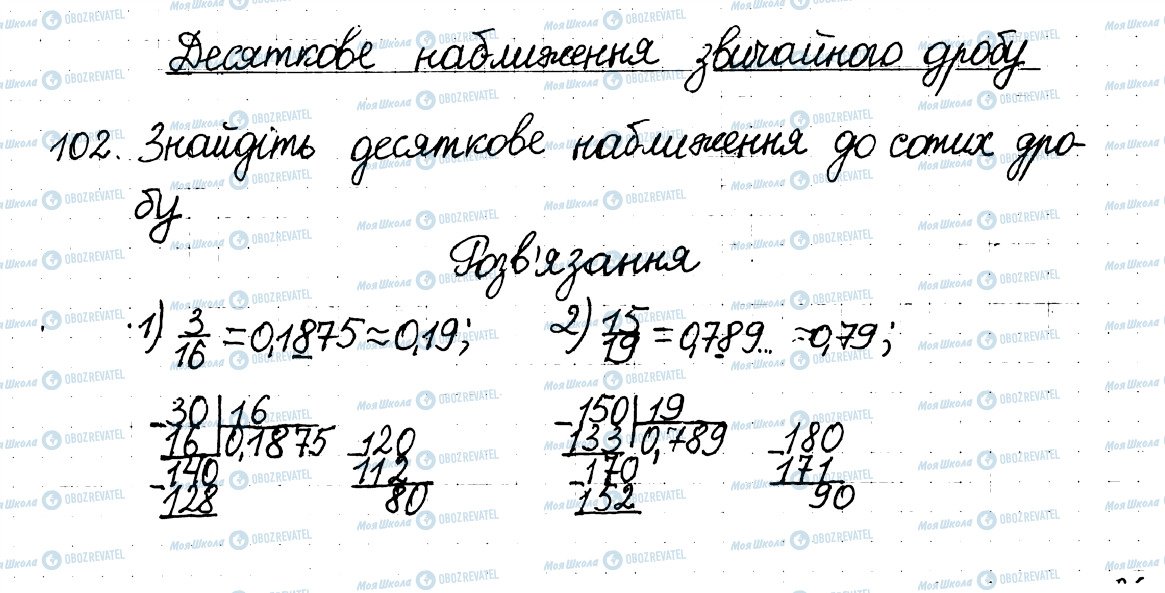 Десяткове наближення звичайного дробу
102. Знайдіть десяткове наближення до сотих дро-
бу
Розв'язання
1) 3/16 = 0,1875 ≈ 0,19; 2) 15/19 = 0,789... ≈ 0,79;
30 | 16 150 | 19
16 0,1875 120 133 0,789 180
140 112 170 171
128 80 152 90
МояШкола OBOZREVATEL